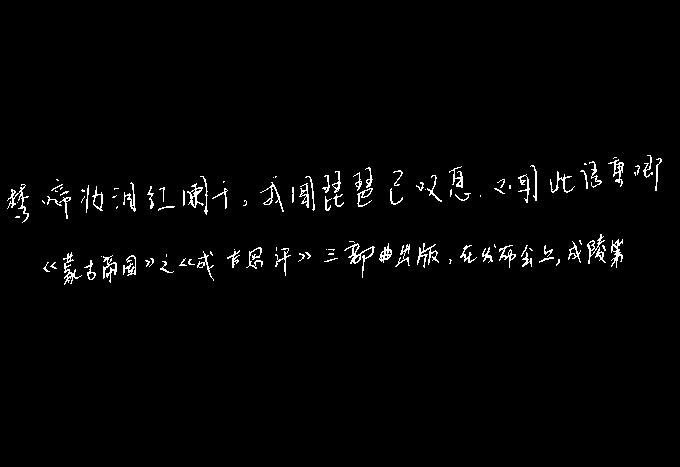 梦啼妆泪红阑干，我闻琵琶已叹息，又闻此语重唧
《蒙古帝国》之《成吉思汗》三部曲出版，在发布会上，成陵第